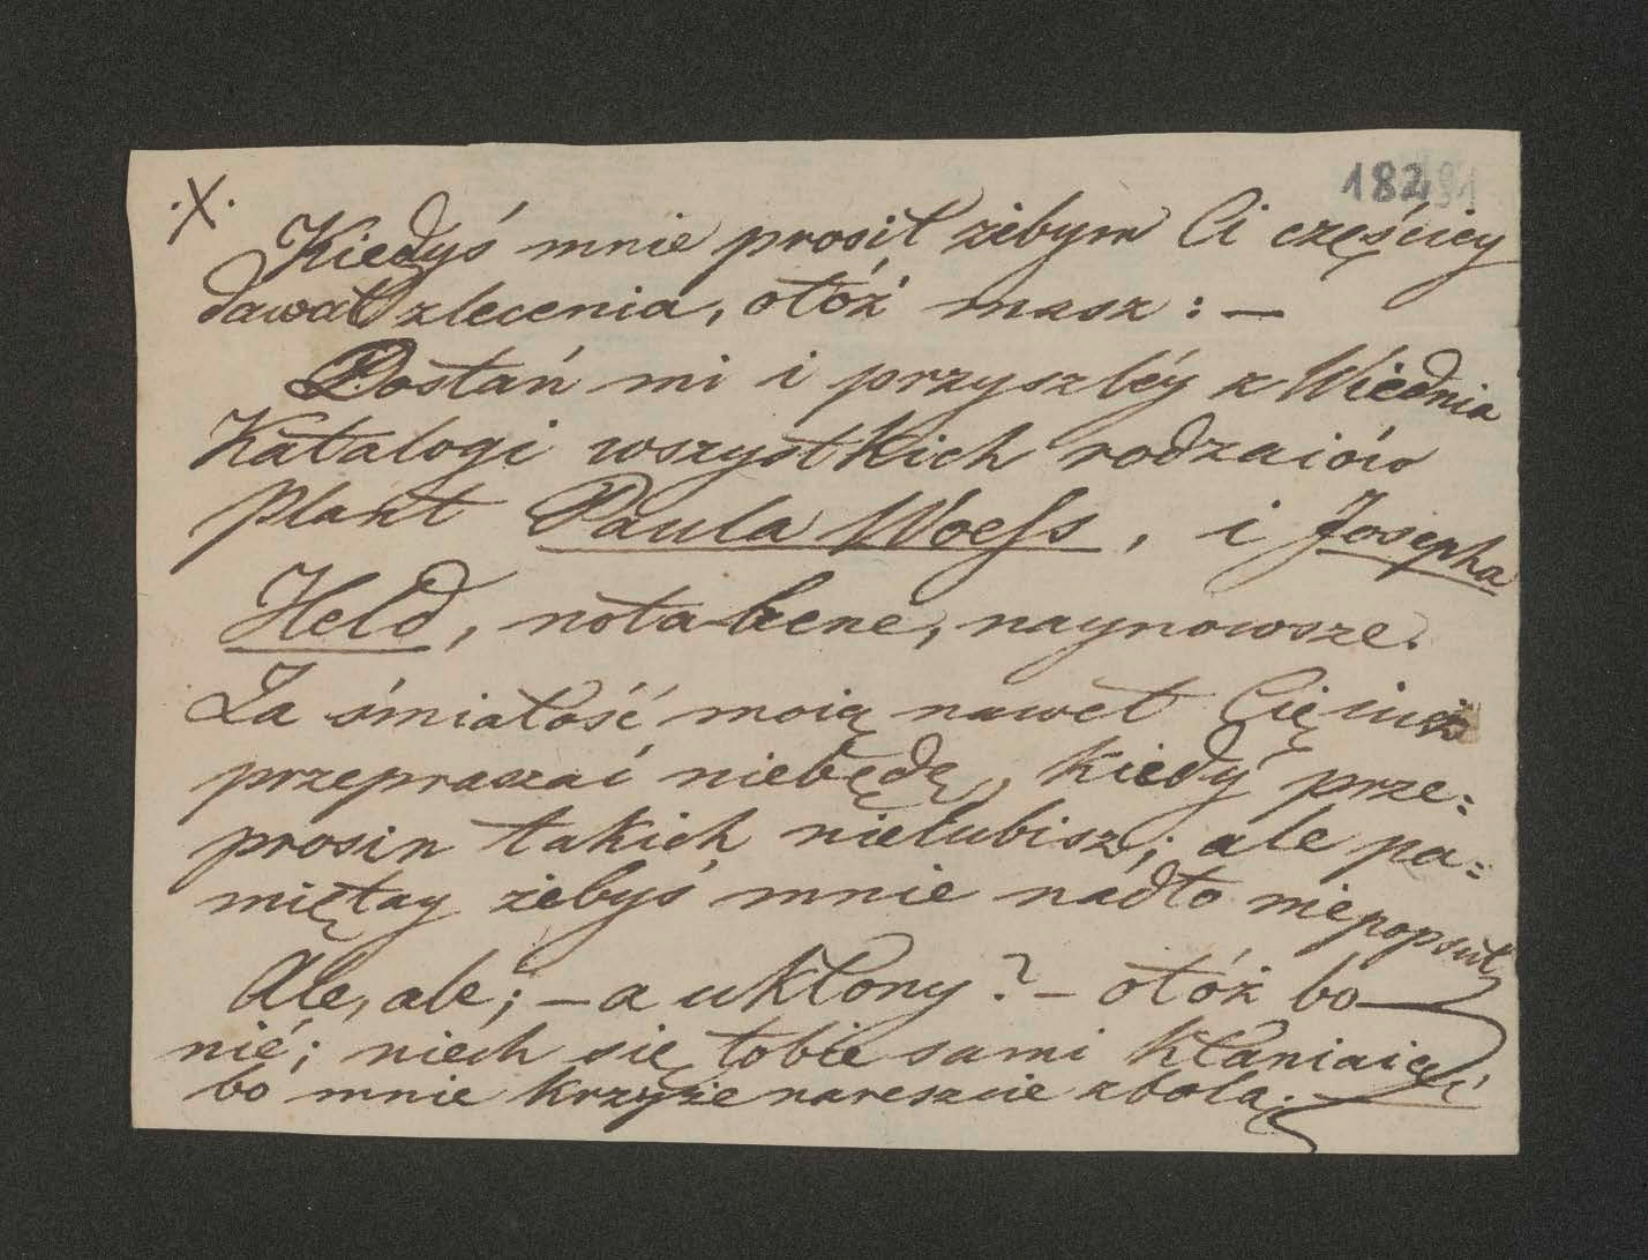 182
.X.
Kiedyś mnie prosił żebym Ci częściey
dawał zlecenia, otóż masz : —
Dostań mi i przyszléy z Wiednia
Katalogi wszystkich rodzaiów
plant Paula Woess, i Josepha
Held, nota bene, naynowsze.
Za śmiałość moią nawet Cię iuż
przepraszać niebędę, kiedy prze=
prosin takich nielubisz; ale pa=
miętay żebyś mnie nadto niepopsuł
Ale, ale; — a ukłony? — otóż bo
nié; niech się tobie sami kłaniaią
bo mnie krzyże nareszcie zbolą.